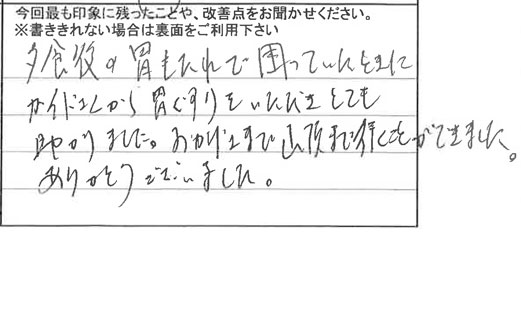 今回最も印象に残ったことや、改善点をお聞かせください。
※書ききれない場合は裏面をご利用下さい
夕食後の胃もたれで困っていたときに
ガイドさんから胃ぐすりをいただきとても
助かりました。おかげさまで山頂まで行くことができました。
ありがとうございました。